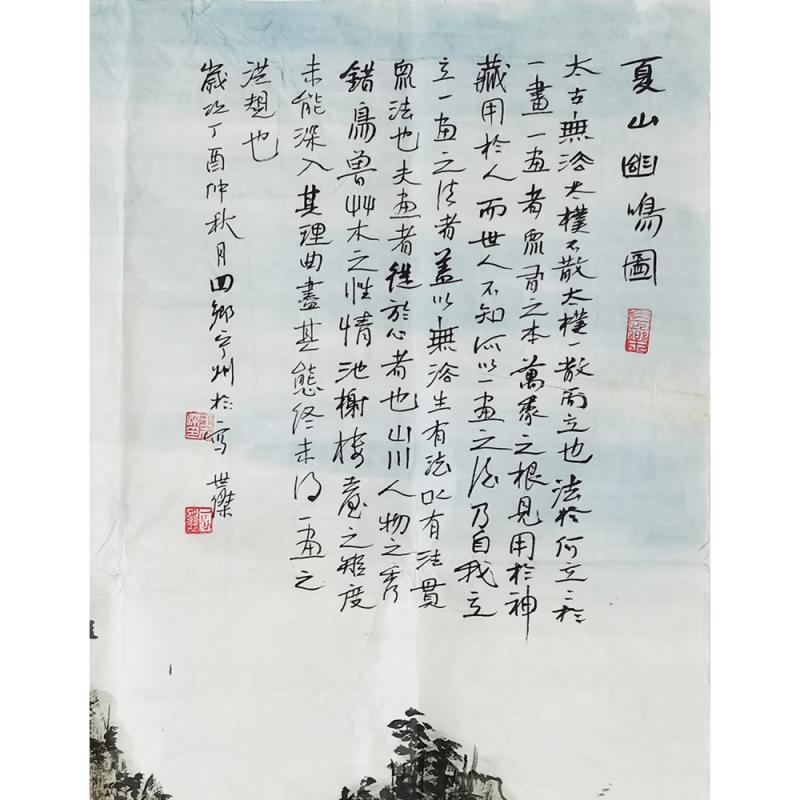 夏山幽鳴圖
太古無法太樸不散太樸一散而法立也法於何立立於
一畫一畫者眾有之本萬象之根見用於神
藏用於人而世人不知所以一畫之法乃自我立
立一畫之法者蓋以無法生有法以有法貫
眾法也夫畫者從於心者也山川人物之秀
錯鳥獸艸木之性情池榭樓臺之矩度
未能深入其理曲盡其態終未得一畫之
洪規也
歲次丁酉仲秋月 寧州 於一寫 世傑